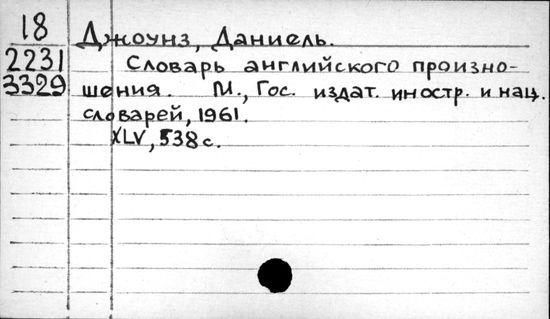 18 Джоунз, Даниель.
2231 Словарь английского произно-
3329 шения. М., Гос. издат. иностр. и нац.
словарей, 1961.
XLV, 538 с.